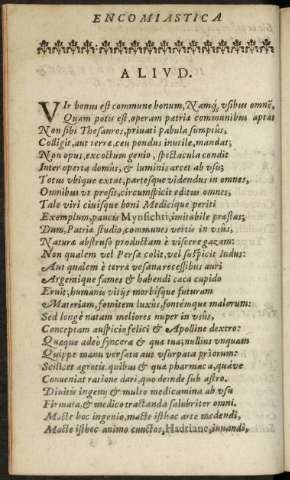 ENCOMIASTICA
ALIVD.
VIr bonus est commune bonum, Namq́, vsibus omnẽ,
Quam potis est, operam patria communibus aptãs
Non sibi Thesauros, priuati pabula sumptus,
Colligit, aut terræ, ceu pondus inutile, mandat;
Non opus, excoctum genio, spectacula condit
Inter operta domus, & luminis arcet ab vsu;
Totus vbique extat, partesque videndus in omnes,
Omnibus vt prosit, circumspicit editus omnes,
Tale viri ciuisque boni Medicique periti
Exemplum, paucis Mynsichti, imitabile præstas;
Dum, Patriæ studio, communes vertis in vsus,
Naturæ abstruso productam è viscere gazam:
Non qualem vel Persa colit, vel suspicit Indus:
Aut qualem è terræ vesana recessibus auri
Argentique fames & habendi cæca cupido
Eruit, humanis vitijs morbisque futuram
Materiam, fomitem luxus, fontemque malorum:
Sed longè natam meliores nuper in vsus,
Conceptam auspicio felici & Apolline dextro:
Quæque adeo syncera & quæ tua; nullius vnquam
Quippe manu versata aut vsurpata priorum:
Scilicet agrotis quibus & quæ pharmaca, quáve
Conueniat ratione dari, quo deinde sub astro.
Diuitis ingenij & multo medicamina ab vsu
Firmata, & medico tractanda salubriter omni.
Macte hoc ingenio, macte isthac arte medendi,
Macte isthoc animo cunctos, Hadriane, iuuandi,